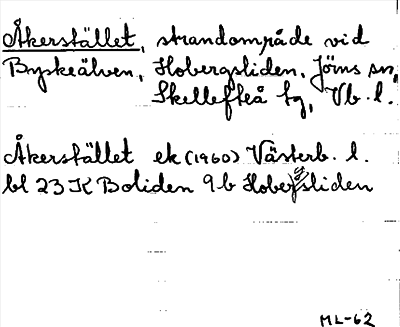 Åkerstället, strandområde vid
Byskeälven, Hobergsliden, Jörns sn,
Skellefteå tg, Vb. l.
Åkerstället ek (1960) Västerb. l.
bl 23 K Boliden 9 b Hobergsliden
ML-62